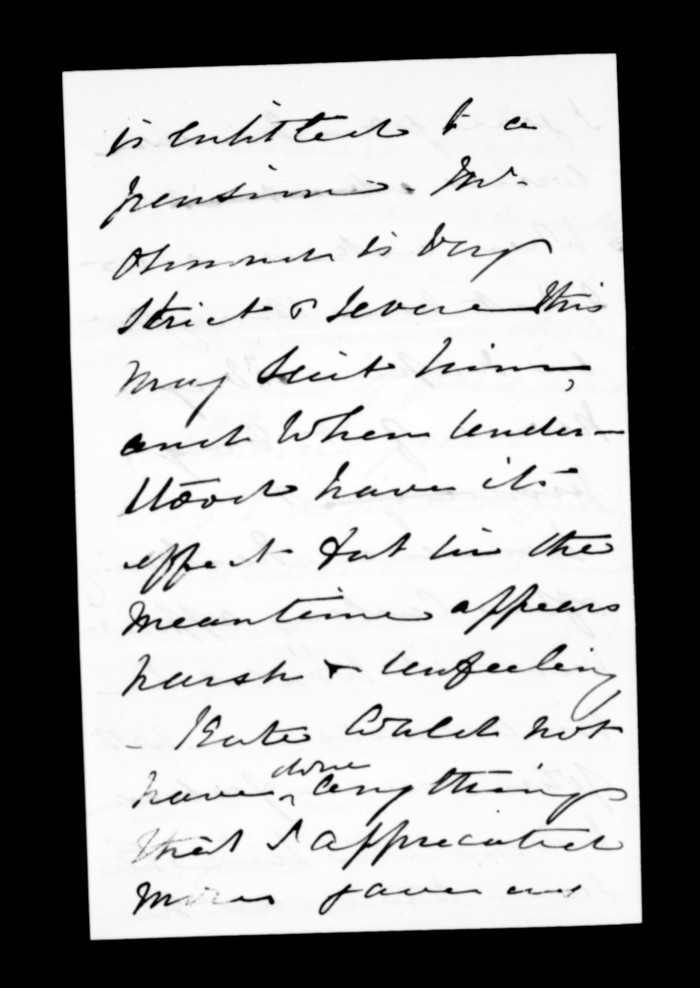 is entitled to a
pension. Mr.
Ormond is very
strict & severe this
may suit him,
and when under-
stood have its
effect but in the
meantime appears
harsh & unfeeling
Kate could not
have done anything
that I appreciated
more